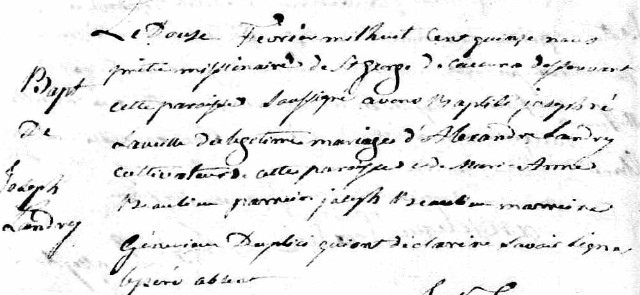 Le Douse Fevrier mil huit Cens quinse nous
prètre missinaire de St george de Cacouna desservant
Bapt
cette paroisse Soussigné avons Baptisé joseph né
De
La veille du legitime mariage d'Alexandre Landry
Joseph
cultivateur de cette paroisse et de Marie Anne
Landry
Beaulieu parrain joseph Beaulieu marreine
Génevieve Duplici qui ont declaré ne Savoir Signer
le père absent